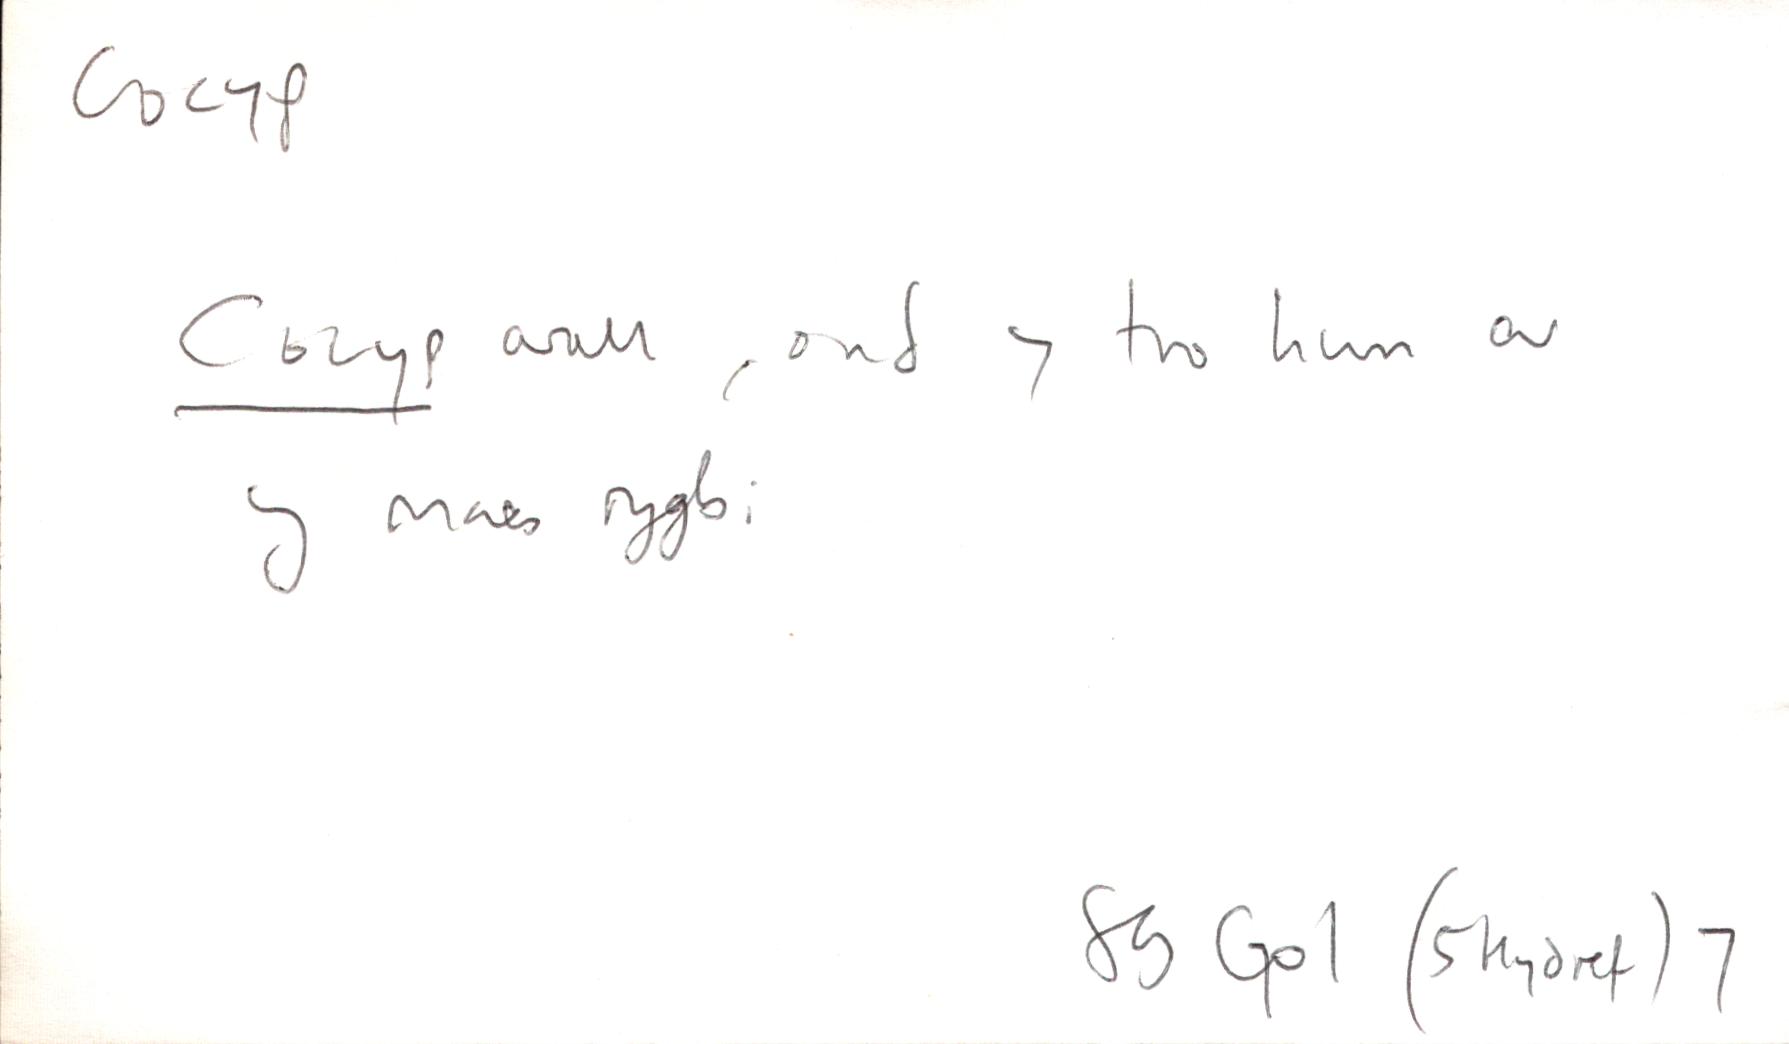 Cocyp
Cocyp arall, ond y tro hwn ar
y maes rygbi
89 Gol (5 Hydref) 7